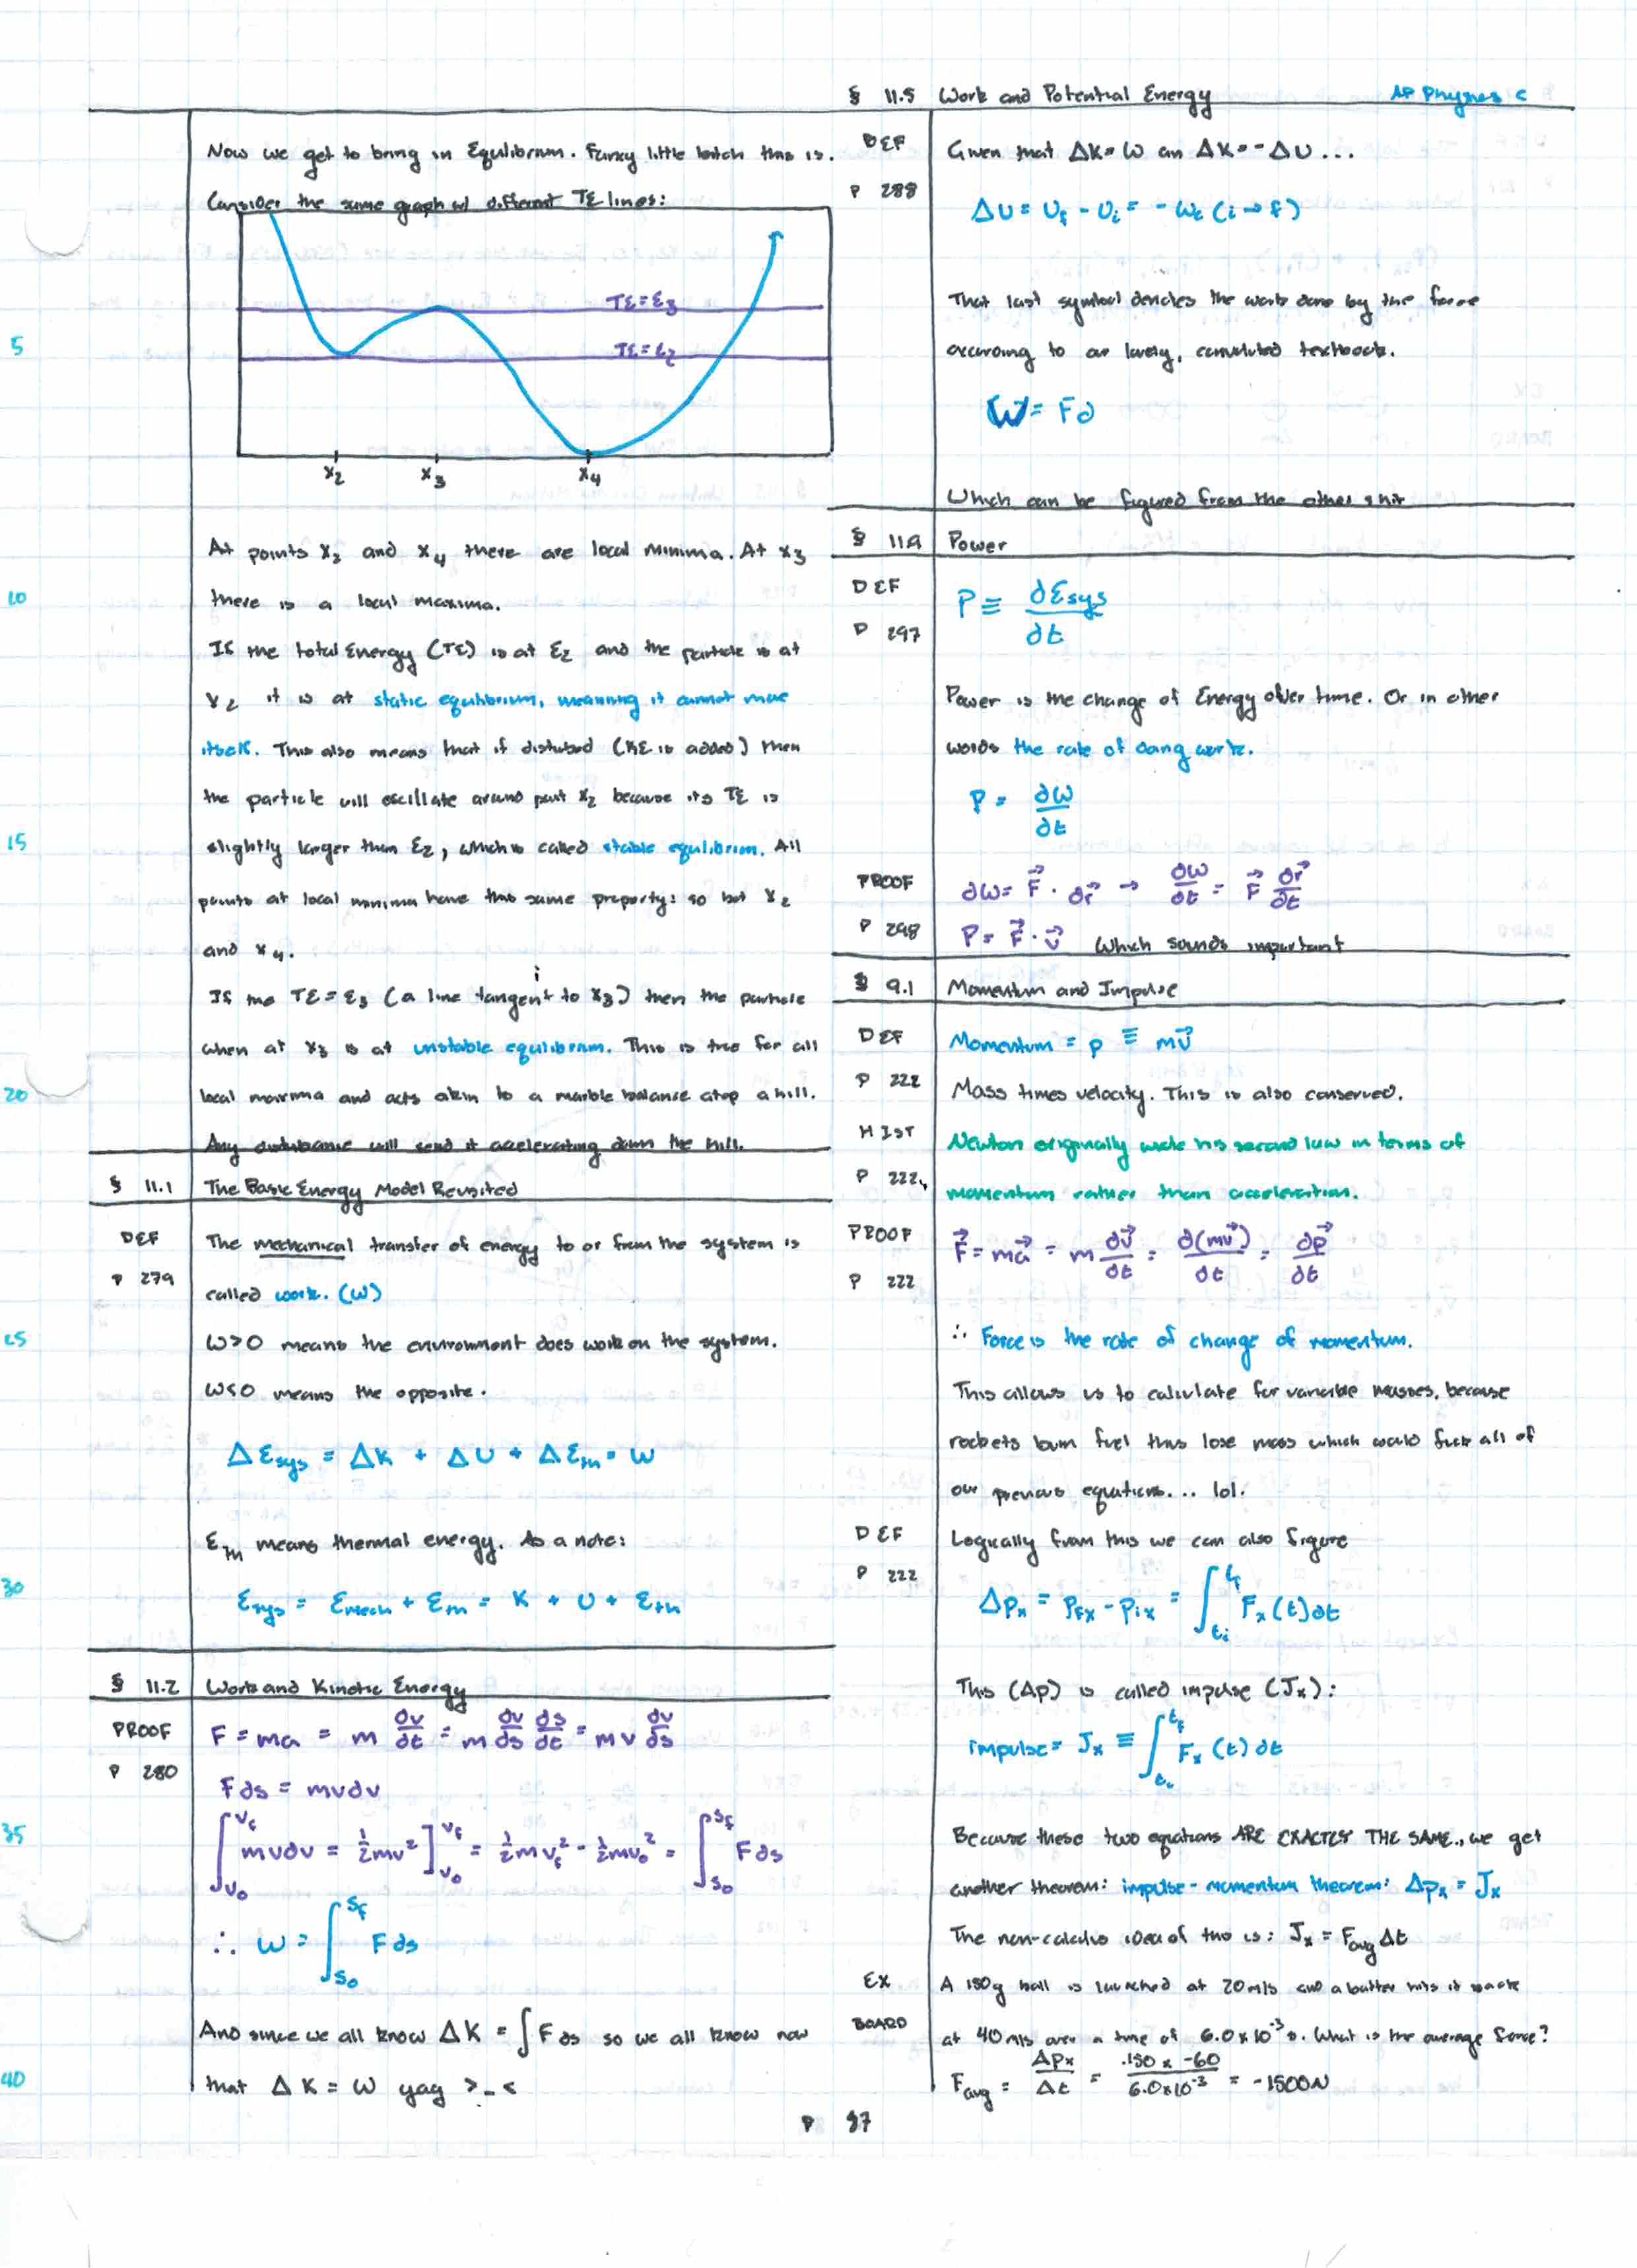 Now we get to bring in Equilibrium. Funky little bitch this is.
Consider the same graph w/ different TE lines:
TE=E₃
5
TE=E₂
x₂ x₃ x₄
At points x₂ and x₄ there are local minima. At x₃
10
there is a local maxima.
If the total Energy (TE) is at E₂ and the particle is at
x₂ it is at static equilibrium, meaning it cannot move
itself. This also means that if disturbed (KE is added) then
the particle will oscillate around point x₂ because its TE is
15
slightly larger than E₂, which is called stable equilibrium. All
points at local minima have this same property: so both x₂
and x₄.
If the TE = E₃ (a line tangent to x₃) then the particle
when at x₃ is at unstable equilibrium. This is true for all
20
local maxima and acts akin to a marble balance atop a hill.
Any disturbance will send it accelerating down the hill.
§ 11.1 The Basic Energy Model Revisited
DEF
P 279
The mechanical transfer of energy to or from the system is
called work. (W)
25
W>0 means the environment does work on the system.
W<0 means the opposite.
ΔEsys = ΔK + ΔU + ΔEth = W
Eth means thermal energy. As a note:
30
Esys = Emech + Eth = K + U + Eth
§ 11.2 Work and Kinetic Energy
PROOF
P 280
F = ma = m ∂v/∂t = m ∂v/∂s ∂s/∂t = mv ∂v/∂s
F∂s = mv∂v
35
∫v₀^vf mv∂v = ½mv²]v₀^vf = ½mvf² - ½mv₀² = ∫s₀^sf F∂s
∴ W = ∫s₀^sf F∂s
And since we all know ΔK = ∫F∂s so we all know now
40
that ΔK = W yay >_<
§ 11.5 Work and Potential Energy AP Physics C
DEF
P 288
Given that ΔK=W an ΔK=-ΔU...
ΔU = Uf - Ui = -Wc (i→f)
That last symbol denotes the work done by the force
according to our lovely, convoluted textbook.
W = F∂
Which can be figured from the other shit
§ 11.9 Power
DEF
P 297
P ≡ ∂Esys/∂t
Power is the change of Energy over time. Or in other
words the rate of doing work.
P = ∂W/∂t
PROOF
P 298
∂W = F⃗ · ∂r⃗ → ∂W/∂t = F⃗ ∂r⃗/∂t
P = F⃗ · v⃗ Which sounds important
§ 9.1 Momentum and Impulse
DEF
P 222
Momentum = p ≡ mv⃗
Mass times velocity. This is also conserved.
HIST
P 222
Newton originally wrote his second law in terms of
momentum rather than acceleration.
PROOF
P 222
F⃗ = ma⃗ = m ∂v⃗/∂t = ∂(mv⃗)/∂t = ∂p⃗/∂t
∴ Force is the rate of change of momentum.
This allows us to calculate for variable masses, because
rockets burn fuel thus lose mass which would fuck all of
our previous equations... lol.
DEF
P 222
Logically from this we can also figure
Δpx = pfx - pix = ∫ti^tf Fx(t)∂t
This (Δp) is called impulse (Jx):
impulse = Jx ≡ ∫ti^tf Fx(t)∂t
Because these two equations ARE EXACTLY THE SAME, we get
another theorem: impulse-momentum theorem: Δpx = Jx
The non-calculus idea of this is: Jx = Favg Δt
EX
BOARD
A 150g ball is launched at 20m/s and a batter hits it back
at 40m/s over a time of 6.0×10⁻³s. What is the average force?
Favg = Δpx/Δt = .150 × -60/6.0×10⁻³ = -1500N
P 87